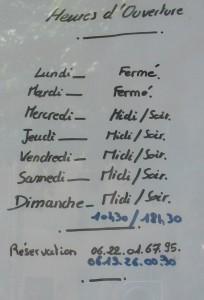 Heures d'Ouverture
Lundi — Fermé.
Mardi — Fermé.
Mercredi — Midi/Soir.
Jeudi — Midi/Soir.
Vendredi — Midi/Soir.
Samedi — Midi/Soir.
Dimanche — Midi/Soir.
10h30 / 18h30
Réservation 06.22.01.67.95.
06.13.26.00.30